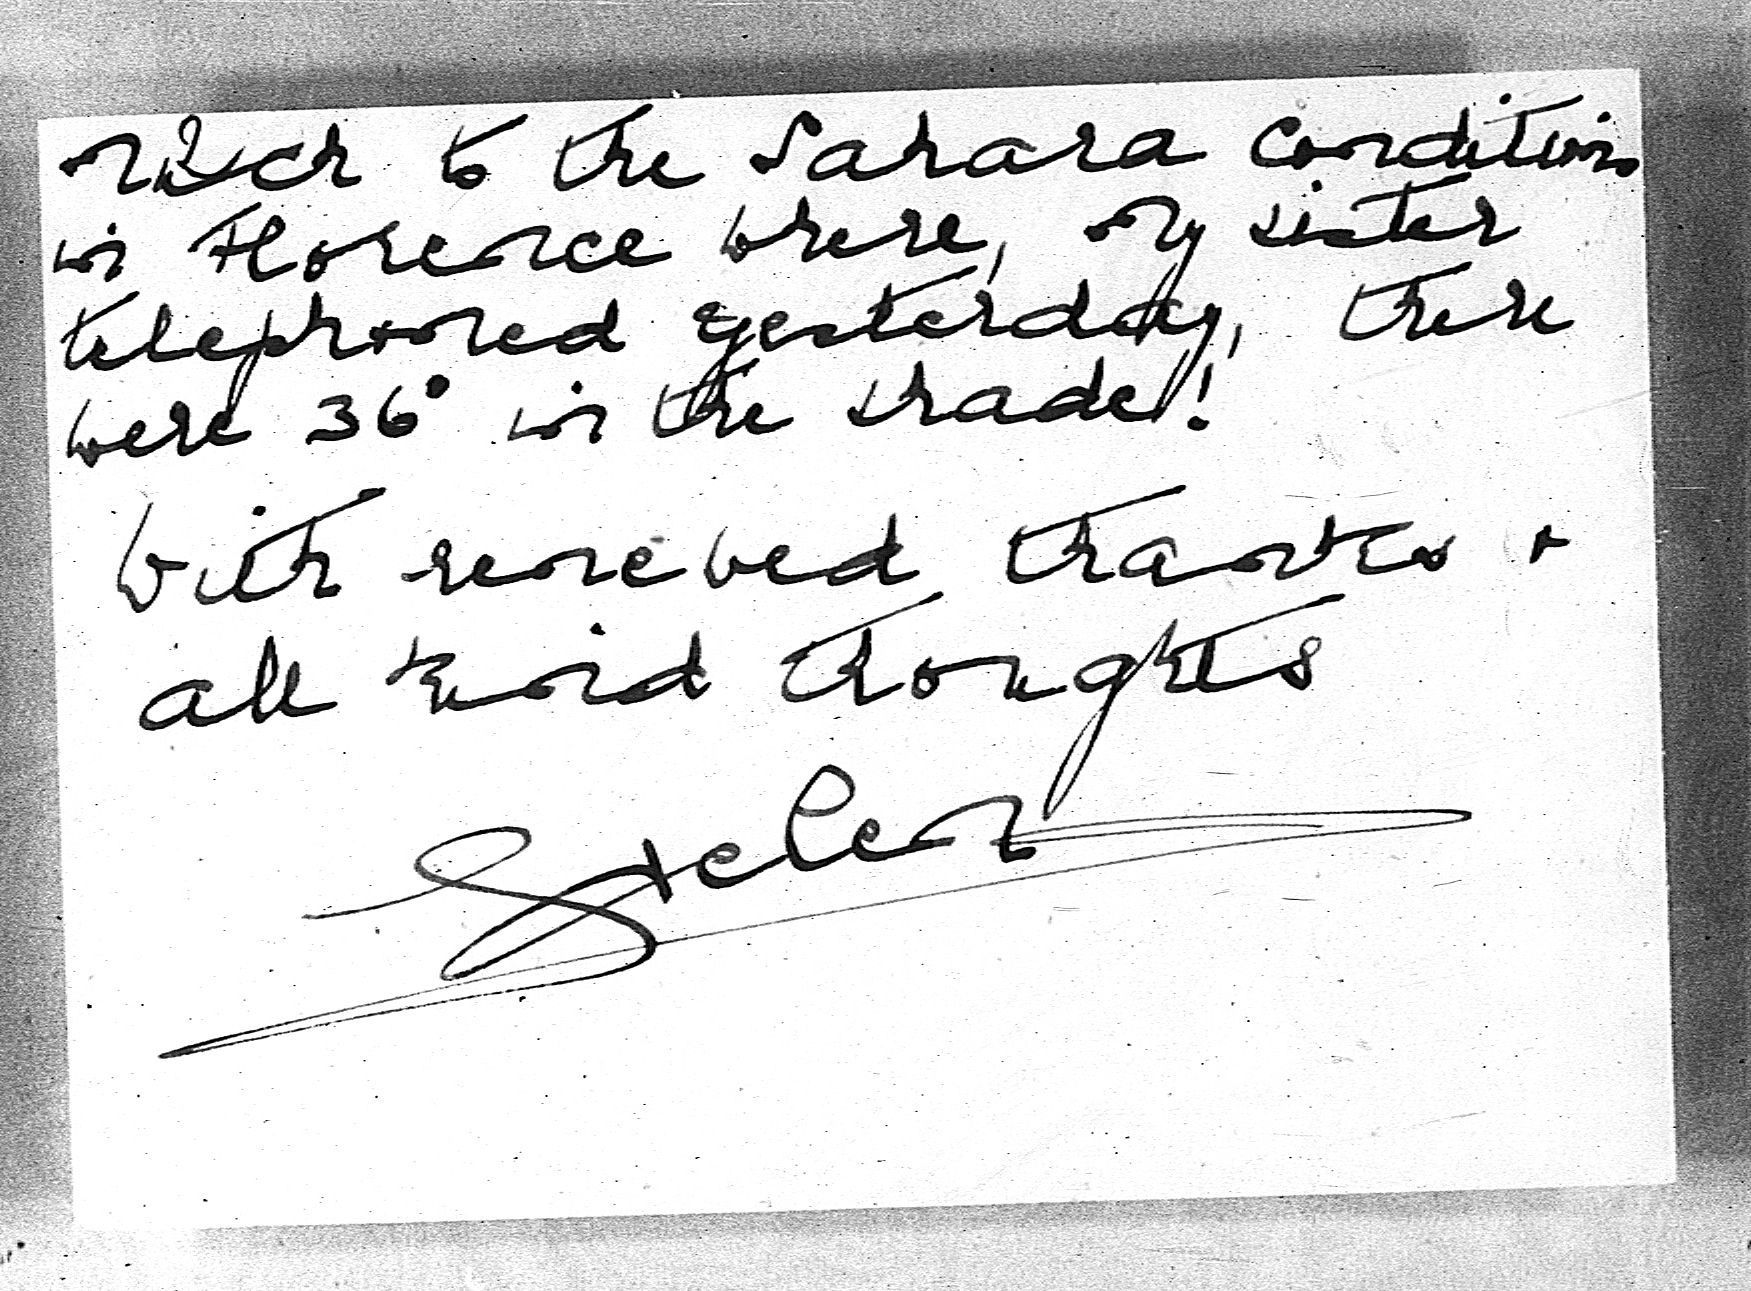 much to the Sahara conditions
in Florence where, my sister
telephoned yesterday, there
were 36° in the shade!
With renewed thanks +
all kind thoughts
Helen